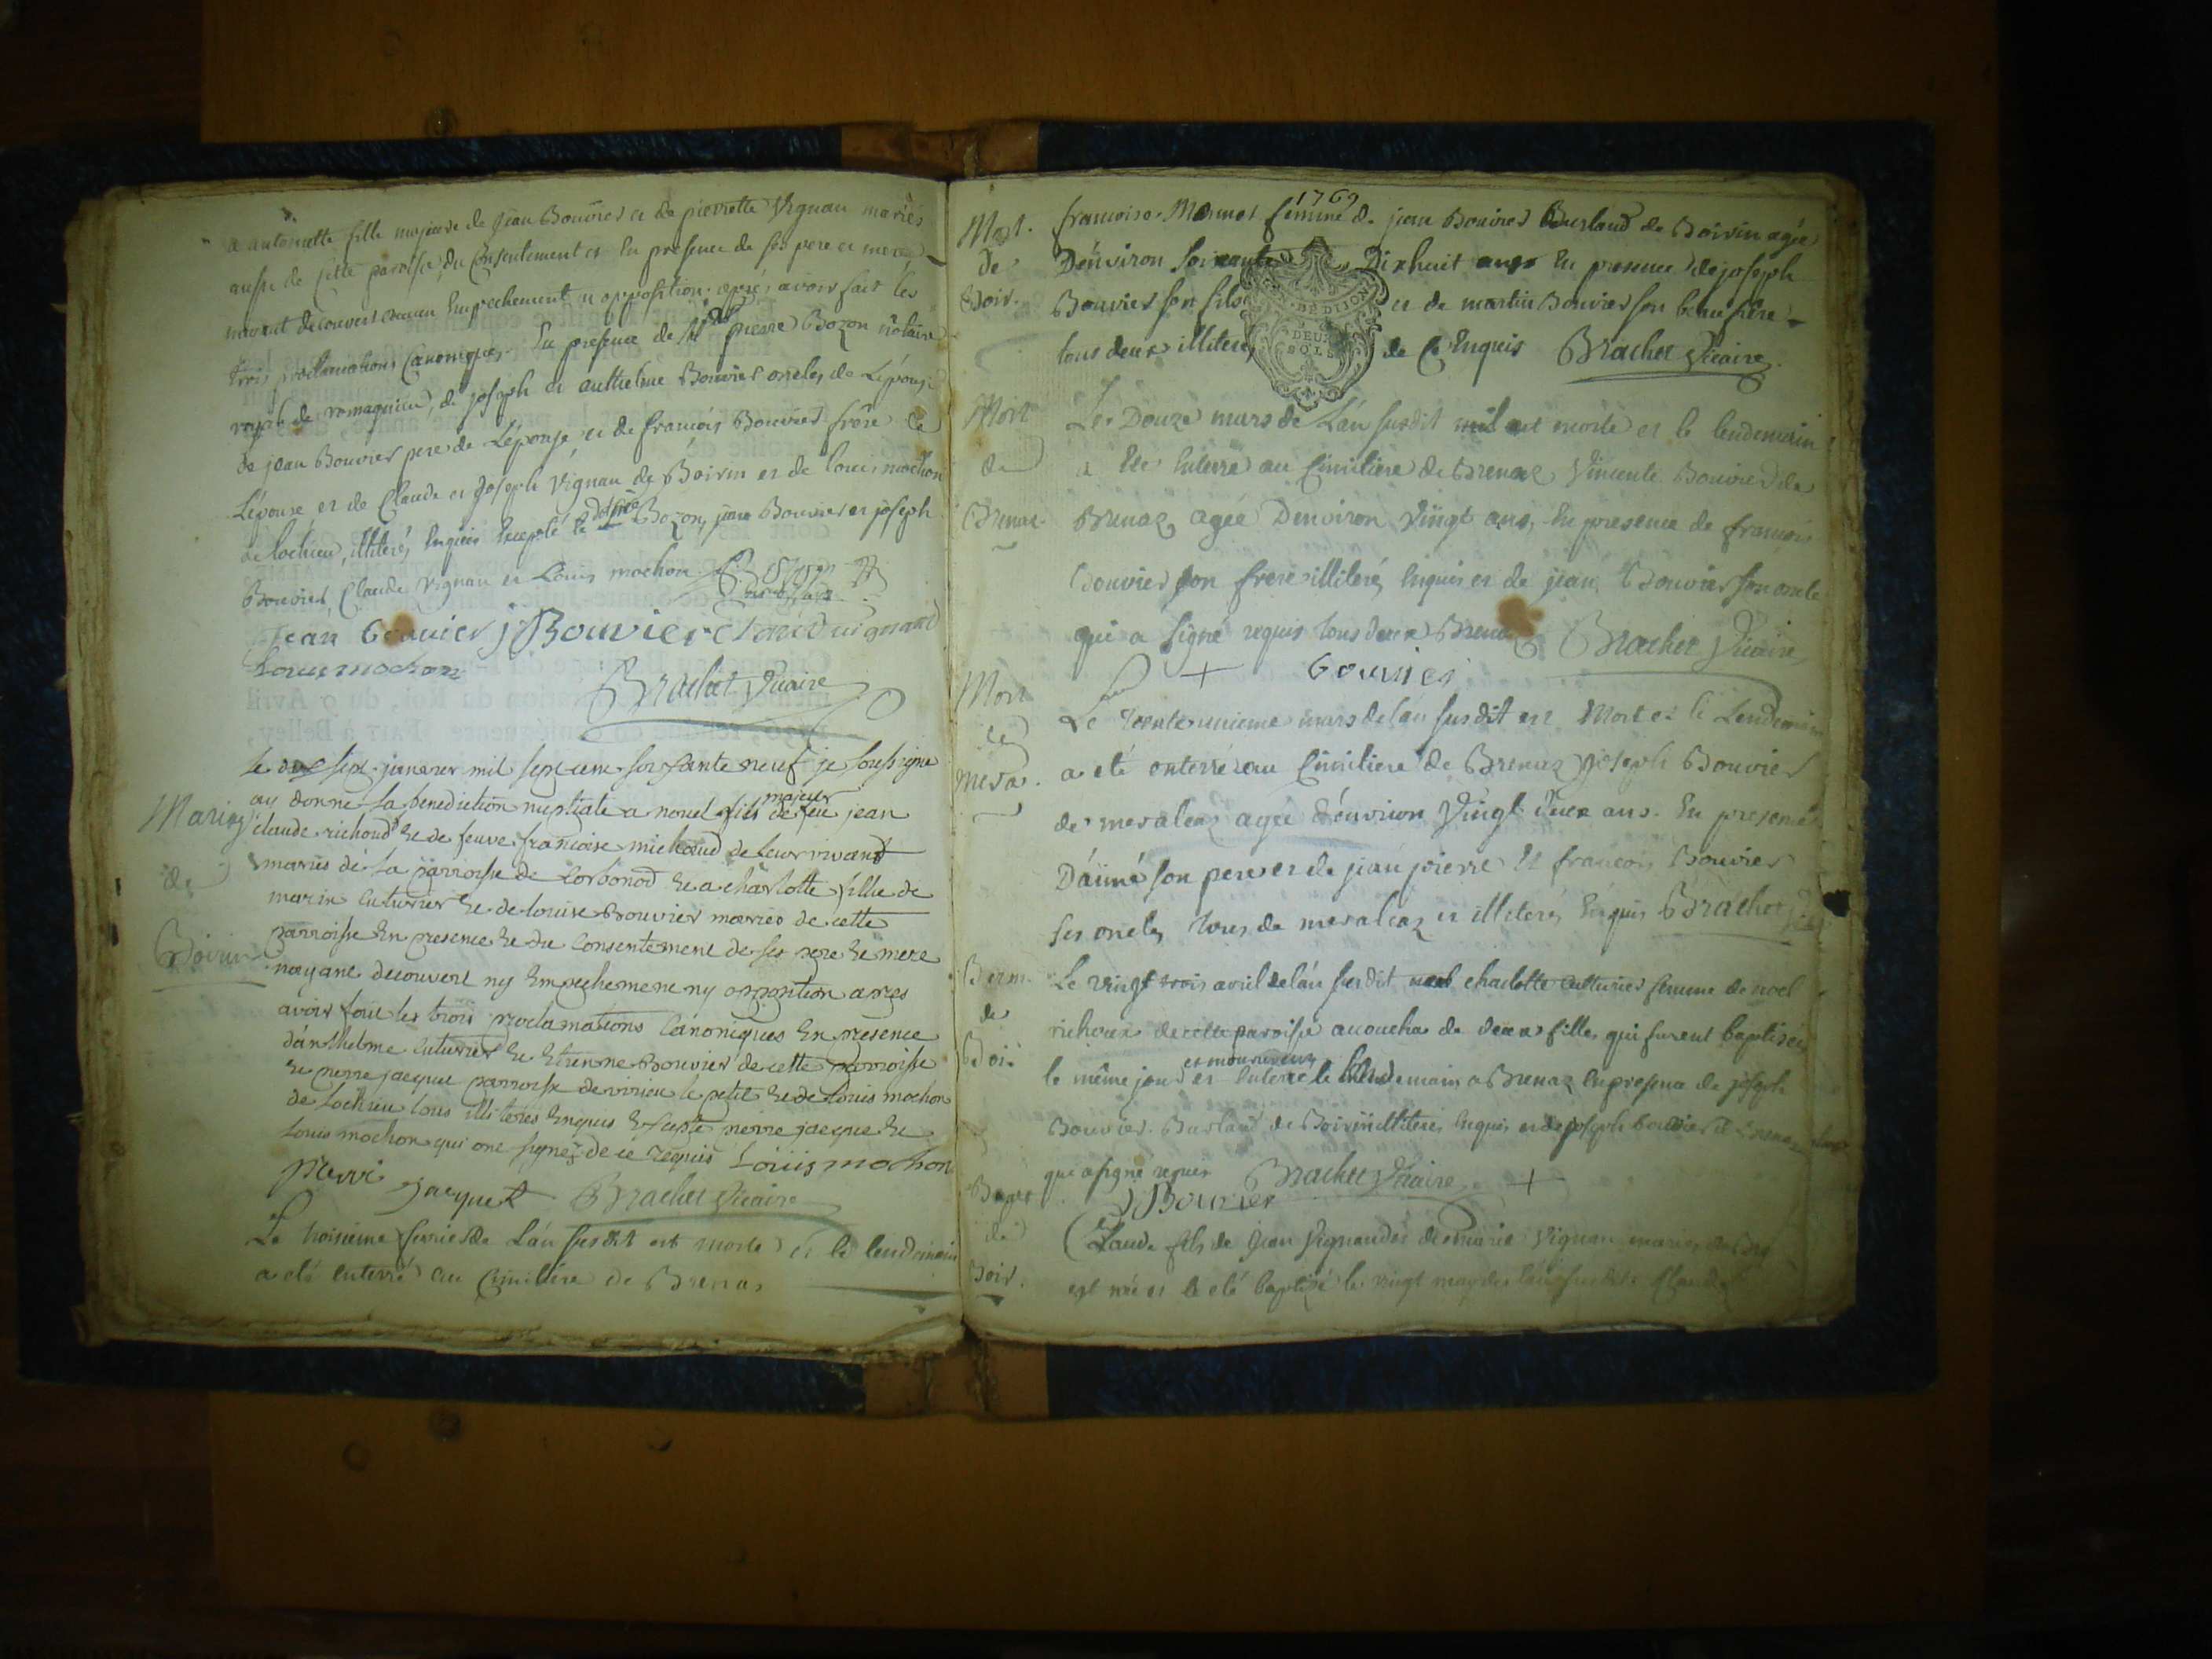 a antoinette fille majeure de jean Bouvier et de pierrette Vignan mariés
aussi de cette paroisse, du consentement et en presence de ses pere et mere,
n'ayant decouvert aucun Empechement n'y opposition. après avoir fait les
trois proclamations Canoniques. En presence de pierre Bozon notaire
royal de romagnieu, de joseph et anthelme Bouvier oncles de L'épouse
de jean Bouvier pere de L'épouse, et de francois Bouvier frére de
L'épouse et de Claude et Joseph Vignan de Boirin et de louis mochon
de lochieu, illiterés Enquis Excepté le Bozon, jean Bouvier et joseph
Bouvier, Claude Vignan et Louis mochon
jean Bouvier jBouvier
Louis mochon
Brachet Vicaire
Le dix sept janvier mil sept cent soissante neuf je soussigné
ay donné la benediction nuptiale a nouel fils majeur de feu jean
claude richoud et de feuve francoise michaud de leur vivant
mariés de la parroisse de Corbonod et a charlotte fille de
marin Cuturier et de louise Bouvier mariés de cette
parroisse En presence et du Consentement de ses pere et mere
nayant decouvert ny Empechement ny opposition apres
avoir fait les trois proclamations Canoniques En presence
d'anthelme Cuturier et Etienne Bouvier de cette parroisse
et pierre jacquet parroisse de virieu le petit et de Louis mochon
de Lochieu tous illiteres Enquis Excepté pierre jacquet et
Louis mochon qui ont signéz de ce requis Loüis mochon
pierre jacquet Brachet Vicaire
Mariag
de
Boirin
Le troisieme fevrier de L'an susdit est morte et le lendemain
a eté Enterré au Cimitiére de Brenas
1769
Mort.
de
Boir.
francoise Mermet femme de jean Bouvier Burlaud de Boirin agée
D'énviron soixante Dixhuit ans En presence de joseph
Bouvier son fils et de martin Bouvier son beaufrére
tous deux illiterés de ce Enquis Brachet Vicaire
Mort
de
Brenaz
Le Douze mars de L'an susdit est morte et le lendemain
a été Enterré au Cimitiere de Brenaz Vincente Bouvier de
Brenaz, agée D'environ Vingt ans, En presence de francois
Bouvier son frere illiteré Enquis et de jean Bouvier son oncle
qui a signé requis tous deux Brenaz Brachet Vicaire
+ Bouvier
Mort
de
Mera.
Le trente unieme mars de l'an susdit est Mort et le Lendemain
a eté enterré au Cimitiere de Brenaz joseph Bouvier
de meraleaz agée d'énvirion Vingt deux ans. En presence
D'áimé son pere et de jean pierre et francois Bouvier
ses oncles tous de meraleaz et illiterés Enquis Brachet
Bapm.
de
Boi.
Le vingt trois avril de l'an susdit charlotte cutturier femme de noel
richoux de cette paroisse acoucha de deux filles qui furent baptisées
le même jour et moururent et Enterré le lendemain a Brenaz En presence de joseph
Bouvier Burlaud de Boirin illiteré Enquis et de joseph bouvier de Brenaz
qui a signé requis Brachet Vicaire +
jBouvier
Bapt
de
Boir.
Claude fils de jean Vignan et de marie Vignan mariés
est né et a eté baptizé le vingt may de l'an susdit Claude